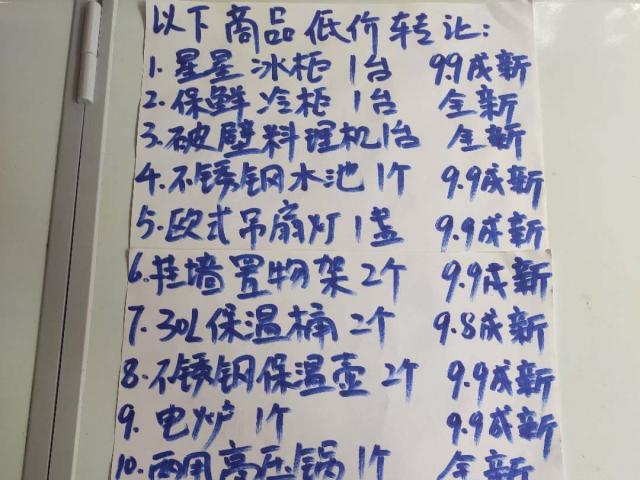 以下商品低价转让:
1.星星冰柜1台 9.9成新
2.保鲜冷柜1台 全新
3.破壁料理机1台 全新
4.不锈钢水池1个 9.9成新
5.欧式吊扇灯1盏 9.9成新
6.挂墙置物架2个 9.9成新
7.30L保温桶2个 9.8成新
8.不锈钢保温壶2个 9.9成新
9.电炉1个 9.9成新
10.两用高压锅1个 全新